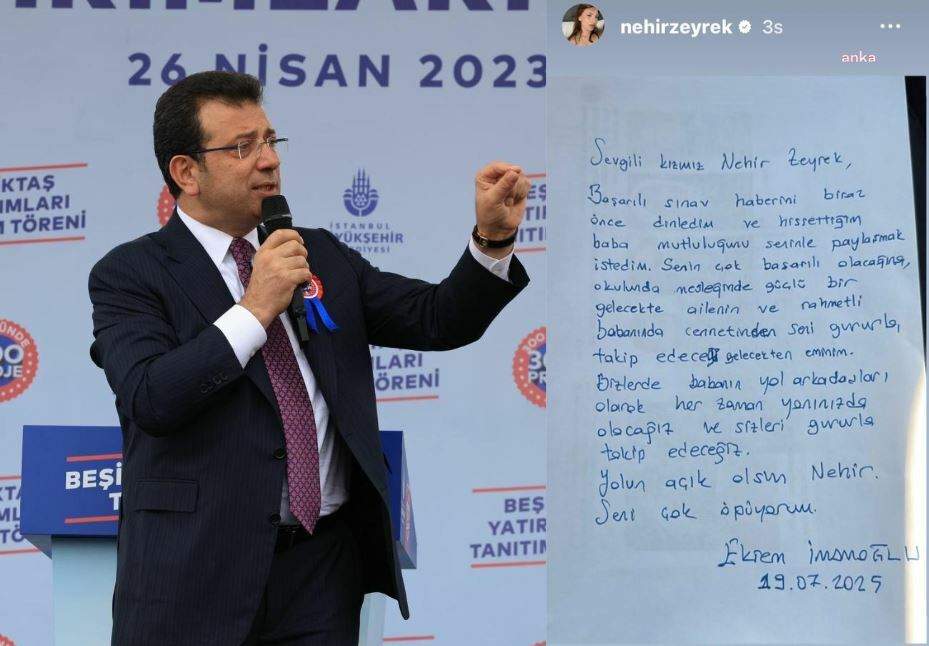 26 NİSAN 2023
İSTANBUL
YÜKŞEHİR
BEŞİ
BEŞ
YATIR
TANITIM
nehirzeyrek 3s
anka
Sevgili kızmız Nehir Zeyrek,
Başarılı sınav haberini biraz
önce dinledim ve hissettiğim
baba mutluluğunu seninle paylaşmak
istedim. Senin çok başarılı olacağına,
okulunda mesleğinde güçlü bir
gelecekte ailenin ve rahmetli
babanında cennetinden seni gururla
takip edeceği gelecekten eminim.
Bizlerde babanın yol arkadaşları
olarak her zaman yanınızda
olacağız ve sizleri gururla
takip edeceğiz.
Yolun açık olsun Nehir.
Seni çok öpüyorum.
Ekrem İmamoğLU
19.07.2025